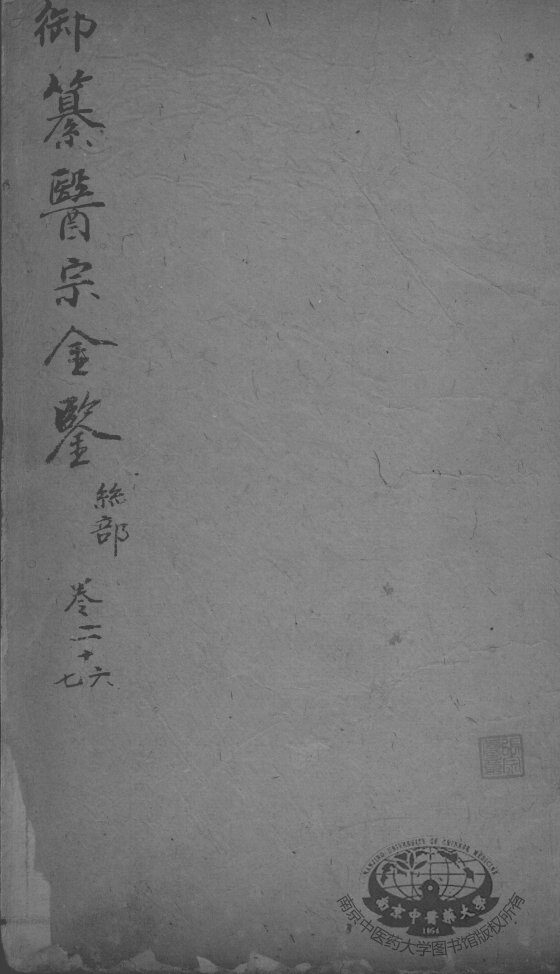 御纂醫宗金鑒
總部
卷二十六
七
NANJING UNIVERSITY OF CHINESE MEDICINE
南京中醫藥大學
1954
南京中医药大学图书馆版权所有